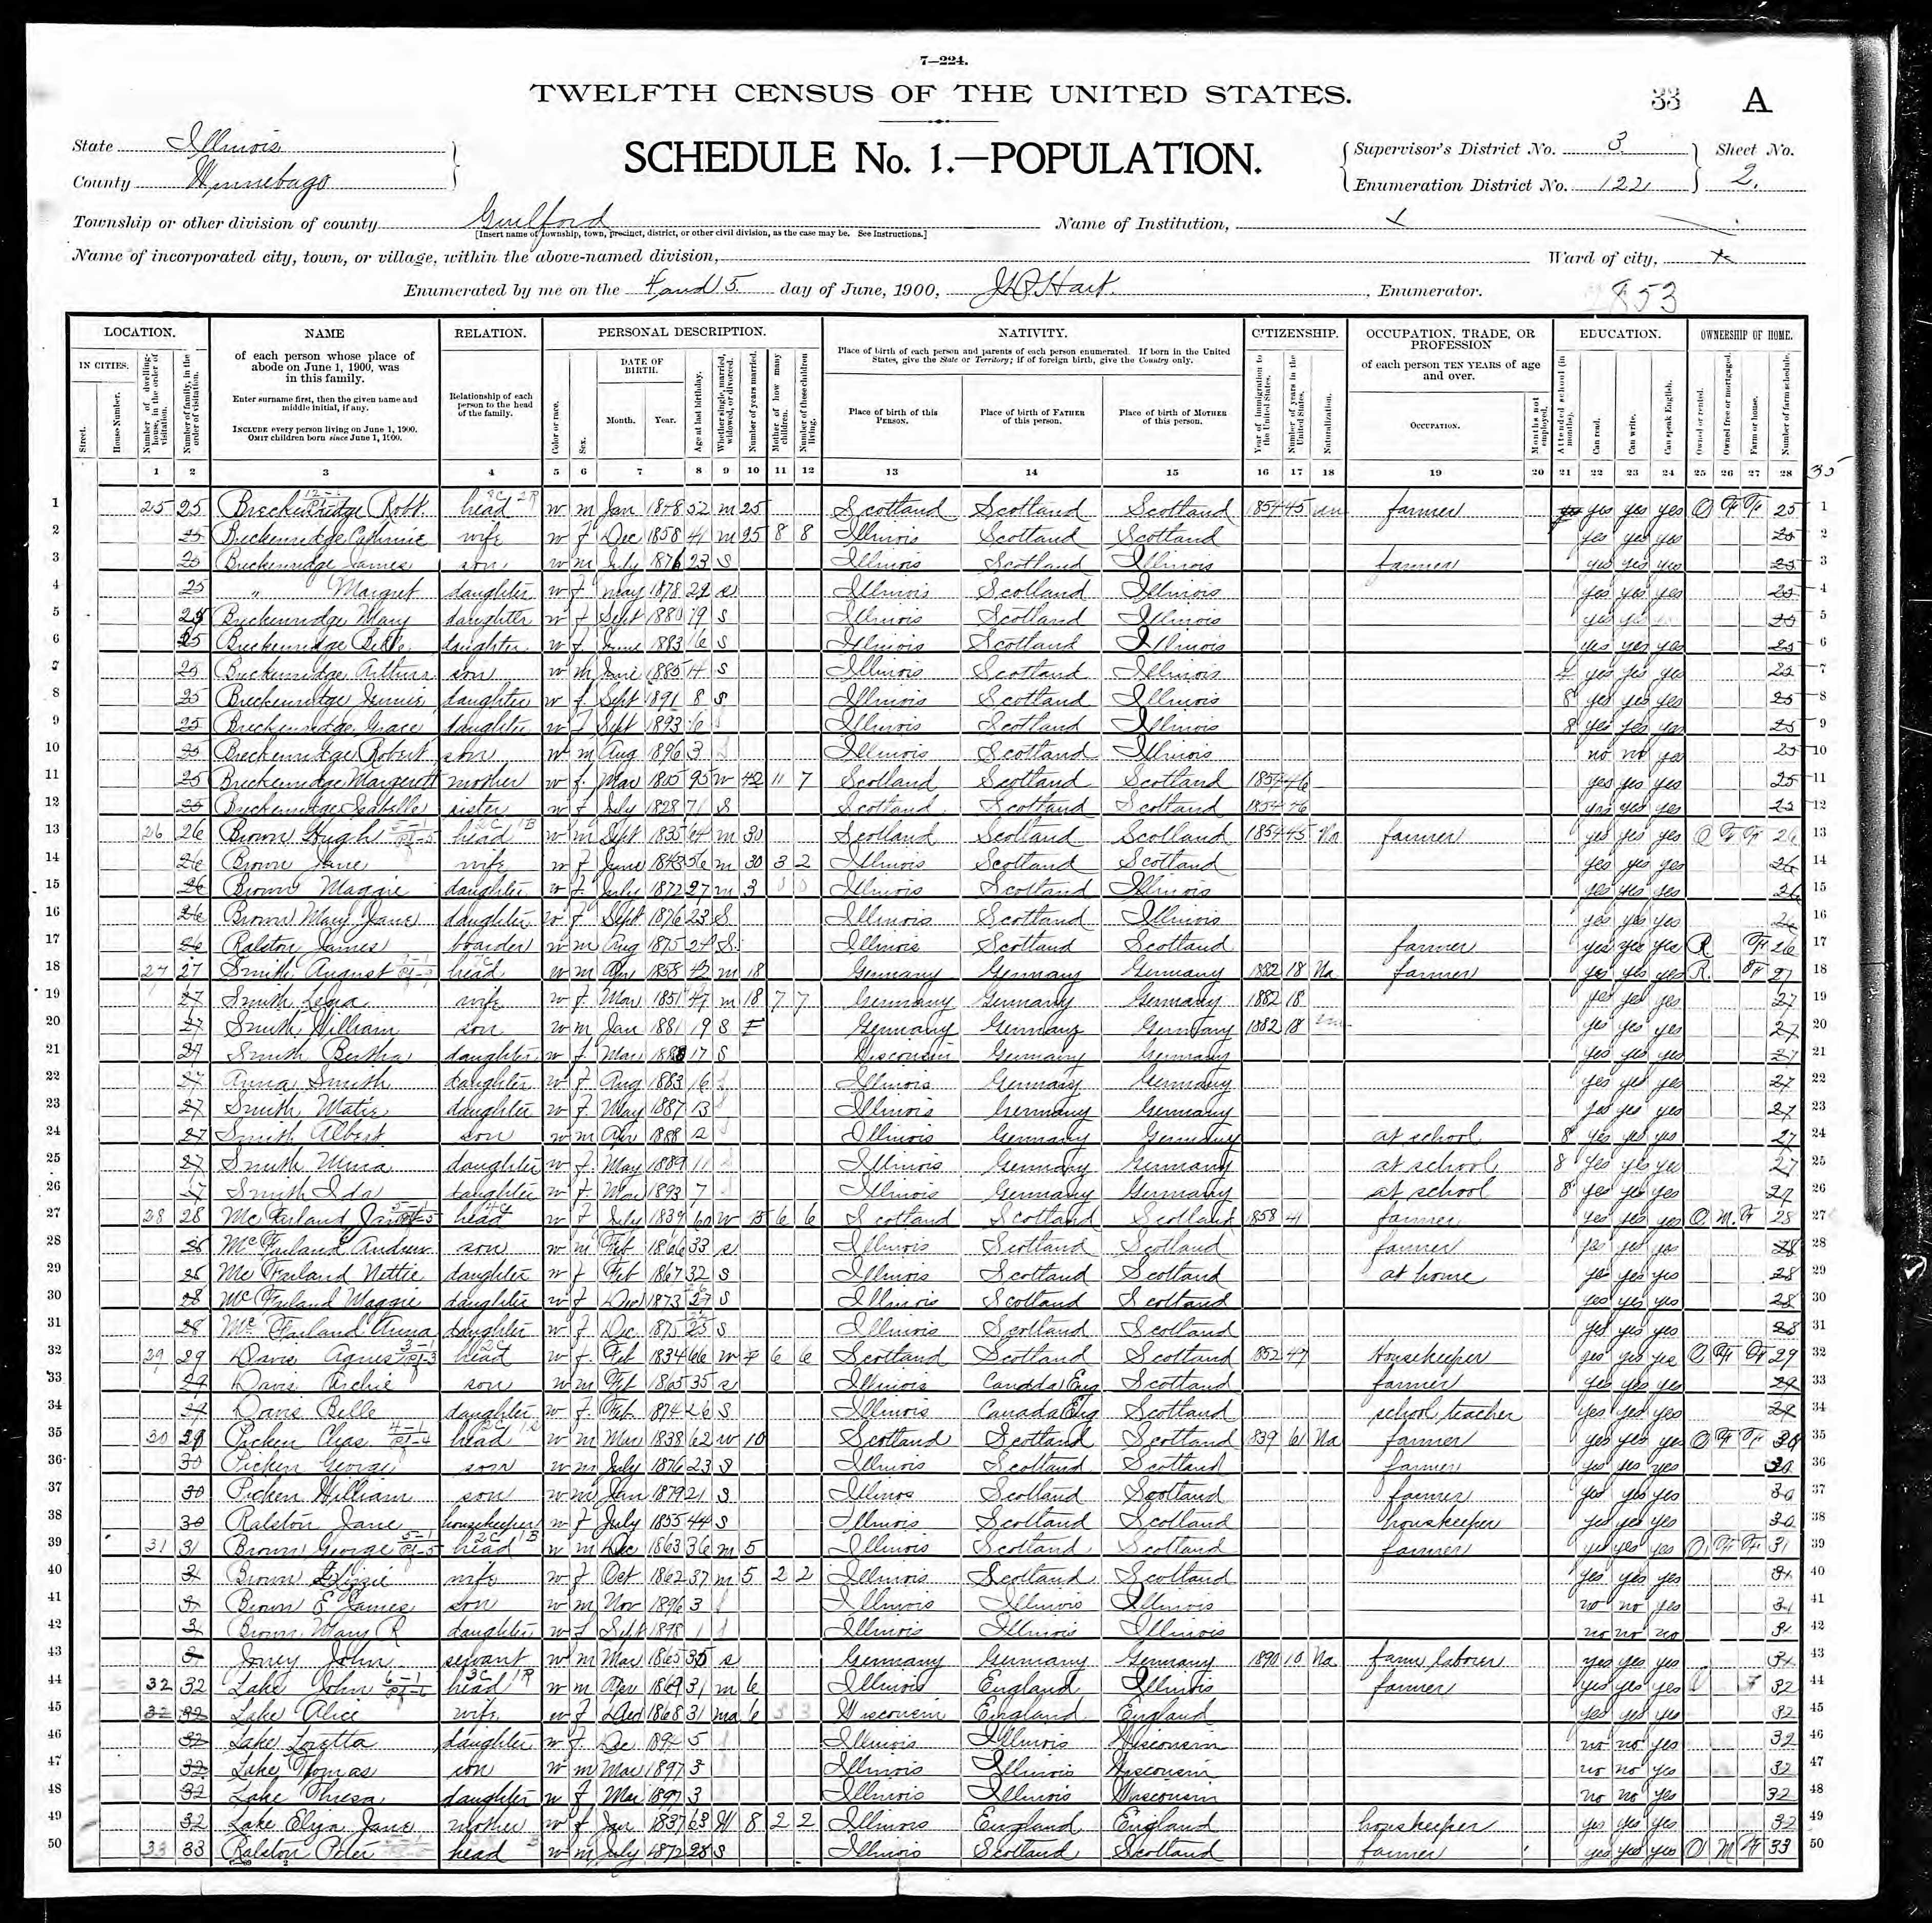 7—224.
TWELFTH CENSUS OF THE UNITED STATES.
33 A
State Illinois
County Winnebago
SCHEDULE No. 1.—POPULATION.
Supervisor's District No. 3
Enumeration District No. 122
Sheet No. 2.
Township or other division of county Guilford
[Insert name of township, town, precinct, district, or other civil division, as the case may be. See Instructions.]
Name of Institution, x
Name of incorporated city, town, or village, within the above-named division,
Ward of city, x
Enumerated by me on the 4 and 5 day of June, 1900, Hart. , Enumerator.
853
LOCATION. NAME RELATION. PERSONAL DESCRIPTION. NATIVITY. CITIZENSHIP. OCCUPATION, TRADE, OR PROFESSION EDUCATION. OWNERSHIP OF HOME.
IN CITIES. Street. House Number. Number of dwelling-house, in the order of visitation. Number of family, in the order of visitation.
of each person whose place of abode on June 1, 1900, was in this family.
Enter surname first, then the given name and middle initial, if any.
INCLUDE every person living on June 1, 1900. OMIT children born since June 1, 1900.
Relationship of each person to the head of the family.
Color or race. Sex. DATE OF BIRTH. Month. Year. Age at last birthday. Whether single, married, widowed, or divorced. Number of years married. Mother of how many children. Number of these children living.
Place of birth of each person and parents of each person enumerated. If born in the United States, give the State or Territory; if of foreign birth, give the Country only.
Place of birth of this PERSON. Place of birth of FATHER of this person. Place of birth of MOTHER of this person.
Year of immigration to the United States. Number of years in the United States. Naturalization.
of each person TEN YEARS of age and over.
OCCUPATION. Months not employed.
Attended school (in months). Can read. Can write. Can speak English.
Owned or rented. Owned free or mortgaged. Farm or house. Number of farm schedule.
1 2 3 4 5 6 7 8 9 10 11 12 13 14 15 16 17 18 19 20 21 22 23 24 25 26 27 28
35
1 25 25 Breckenridge Robt. head w m Jan 1848 52 m 25 Scotland Scotland Scotland 1854 45 farmer yes yes yes O F F 25 1
2 25 Breckenridge wife w f Dec 1858 41 m 25 8 8 Illinois Scotland Scotland yes yes yes 25 2
3 25 Breckenridge James son w m July 1876 23 S Illinois Scotland Illinois farmer yes yes yes 25 3
4 25 " Margret daughter w f May 1878 s Illinois Scotland Illinois yes yes yes 25 4
5 25 Breckenridge Mary daughter w f Sept 1880 19 S Illinois Scotland Illinois yes yes 25 5
6 25 Breckenridge Belle daughter w f June 1883 16 S Illinois Scotland Illinois yes yes yes 25 6
7 25 Breckenridge Arthur son w m June 1885 14 S Illinois Scotland Illinois yes yes yes 25 7
8 25 Breckenridge Jennie daughter w f Sept 1891 8 S Illinois Scotland Illinois 8 yes yes yes 25 8
9 25 Breckenridge Grace daughter w f Sept 1893 6 Illinois Scotland Illinois 8 yes yes yes 25 9
10 25 Breckenridge Robert son w m Aug 1896 3 Illinois Scotland Illinois no no yes 25 10
11 25 Breckenridge Margerett mother w f Mar 1805 95 w 42 11 7 Scotland Scotland Scotland 1854 46 yes yes yes 25 11
12 25 Breckenridge Isabelle sister w f July 1828 71 S Scotland Scotland Scotland 1854 46 yes yes yes 25 12
13 26 26 Brown Hugh head w m Sept 1835 64 m 30 Scotland Scotland Scotland 1854 45 Na farmer yes yes yes O F F 26 13
14 26 Brown Jane wife w f June 1843 56 m 30 3 2 Illinois Scotland Scotland yes yes yes 26 14
15 26 Brown Maggie daughter w f July 1872 27 m 3 0 0 Illinois Scotland Illinois yes yes yes 26 15
16 26 Brown Mary Jane daughter w f Sept 1876 23 S Illinois Scotland Illinois yes yes yes 26 16
17 26 Ralston James boarder w m Aug 1875 24 S Illinois Scotland Scotland farmer yes yes yes R F 26 17
18 27 27 Smith August head w m 1858 42 m 18 Germany Germany Germany 1882 18 Na farmer yes yes yes R F 27 18
19 27 Smith Lena wife w f Mar 1851 m 18 7 7 Germany Germany Germany 1882 18 yes yes yes 27 19
20 27 Smith William son w m Jan 1881 19 S Germany Germany Germany 1882 18 yes yes yes 27 20
21 27 Smith Bertha daughter w f Mar 17 S Wisconsin Germany Germany yes yes yes 27 21
22 27 Anna Smith daughter w f Aug 1883 16 Illinois Germany Germany yes yes yes 27 22
23 27 Smith Matie daughter w f May 1887 13 Illinois Germany Germany yes yes yes 27 23
24 27 Smith Albert son w m Apr 1888 12 Illinois Germany Germany at school 8 yes yes yes 27 24
25 27 Smith Mina daughter w f May 1889 11 Illinois Germany Germany at school 8 yes yes yes 27 25
26 27 Smith Ida daughter w f Mar 1893 7 Illinois Germany Germany at school 8 yes yes yes 27 26
27 28 28 Mc Farland head w f July 1839 60 w 15 6 6 Scotland Scotland Scotland 1858 41 farmer yes yes yes O M F 28 27
28 28 Mc Farland Andrew son w m Feb 1866 33 s Illinois Scotland Scotland farmer yes yes yes 28 28
29 28 Mc Farland Nettie daughter w f Feb 1867 32 S Illinois Scotland Scotland at home yes yes yes 28 29
30 28 Mc Farland Maggie daughter w f Dec 1873 27 S Illinois Scotland Scotland yes yes yes 28 30
31 28 Mc Farland Anna daughter w f Dec 1875 25 S Illinois Scotland Scotland yes yes yes 28 31
32 29 29 Davis Agnes head w f Feb 1834 66 w 7 6 6 Scotland Scotland Scotland 1852 47 Housekeeper yes yes yes O F F 29 32
33 29 Davis Archie son w m Feb 1865 35 s Illinois Canada Eng Scotland farmer yes yes yes 29 33
34 29 Davis Belle daughter w f Feb 1874 26 S Illinois Canada Eng Scotland school teacher yes yes yes 29 34
35 30 Picken Chas. head w m Mar 1838 62 w 10 Scotland Scotland Scotland 1839 61 Na farmer yes yes yes O F F 30 35
36 30 Picken George son w m July 1876 23 S Illinois Scotland Scotland farmer yes yes yes 30 36
37 30 Picken William son w m Jan 1879 21 S Illinos Scotland Scotland farmer yes yes yes 30 37
38 30 Ralston Jane housekeeper w f July 1855 44 S Illinois Scotland Scotland houskeeper yes yes yes 30 38
39 31 31 Brown George head w m Dec 1863 36 m 5 Illinois Scotland Scotland farmer yes yes yes O F F 31 39
40 31 Brown Lizzie wife w f Oct 1862 37 m 5 2 2 Illinois Scotland Scotland yes yes yes 31 40
41 31 Brown E James son w m Nov 1896 3 Illinois Illinois Illinois no no yes 31 41
42 31 Brown Mary R daughter w f Sept 1898 1 Illinois Illinois Illinois no no no 31 42
43 31 John servant w m Mar 1865 35 s Germany Germany Germany 1890 10 Na farm laborer yes yes yes 31 43
44 32 32 Lake John head w m Apr 1869 31 m 6 Illinois England Illinois farmer yes yes yes F 32 44
45 32 32 Lake Alice wife w f Dec 1868 31 ma 6 3 3 Wisconsin England England yes yes yes 32 45
46 32 Lake Loretta daughter w f Dec 1894 5 Illinois Illinois Wisconsin no no yes 32 46
47 32 Lake Tomas son w m Mar 1897 3 Illinois Illinois Wisconsin no no yes 32 47
48 32 Lake Thresa daughter w f Mar 1897 3 Illinois Illinois Wisconsin no no yes 32 48
49 32 Lake Eliza Jane mother w f Jan 1837 63 W 8 2 2 Illinois England England houskeeper yes yes yes 32 49
50 33 33 Ralston Peter head w m July 1872 28 S Illinois Scotland Scotland farmer yes yes yes O M F 33 50